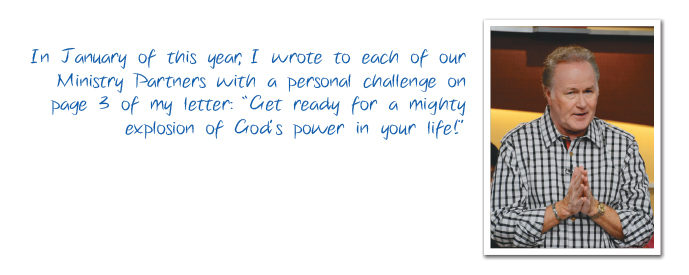 In January of this year, I wrote to each of our
Ministry Partners with a personal challenge on
page 3 of my letter: "Get ready for a mighty
explosion of God's power in your life!"